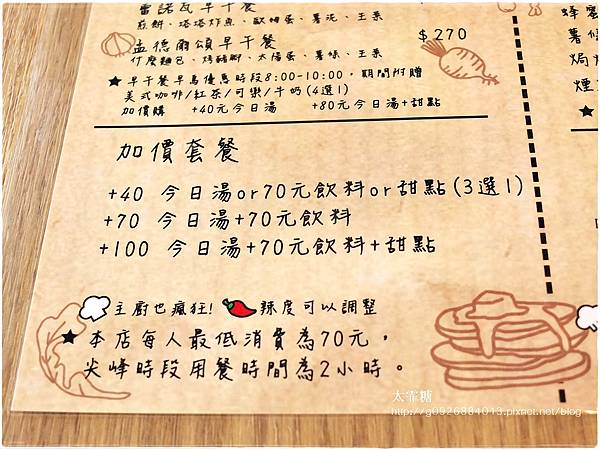 雷諾瓦早午餐
煎餅、塔塔炸魚、歐姆蛋、薯泥、生菜
孟德爾頌早午餐 $270
什麼麵包、烤豬腳、太陽蛋、薯條、生菜
★早午餐早鳥優惠時段8:00-10:00,期間附贈
美式咖啡/紅茶/可樂/牛奶(4選1)
加價購 +40元今日湯 +80元今日湯+甜點
加價套餐
+40 今日湯or70元飲料or甜點(3選1)
+70 今日湯+70元飲料
+100 今日湯+70元飲料+甜點
主廚也瘋狂! 辣度可以調整
★本店每人最低消費為70元,
尖峰時段用餐時間為2小時。
蜂蜜
薯條
焗
煙
★
太霏糖
http://g0926884013.pixnet.net/blog